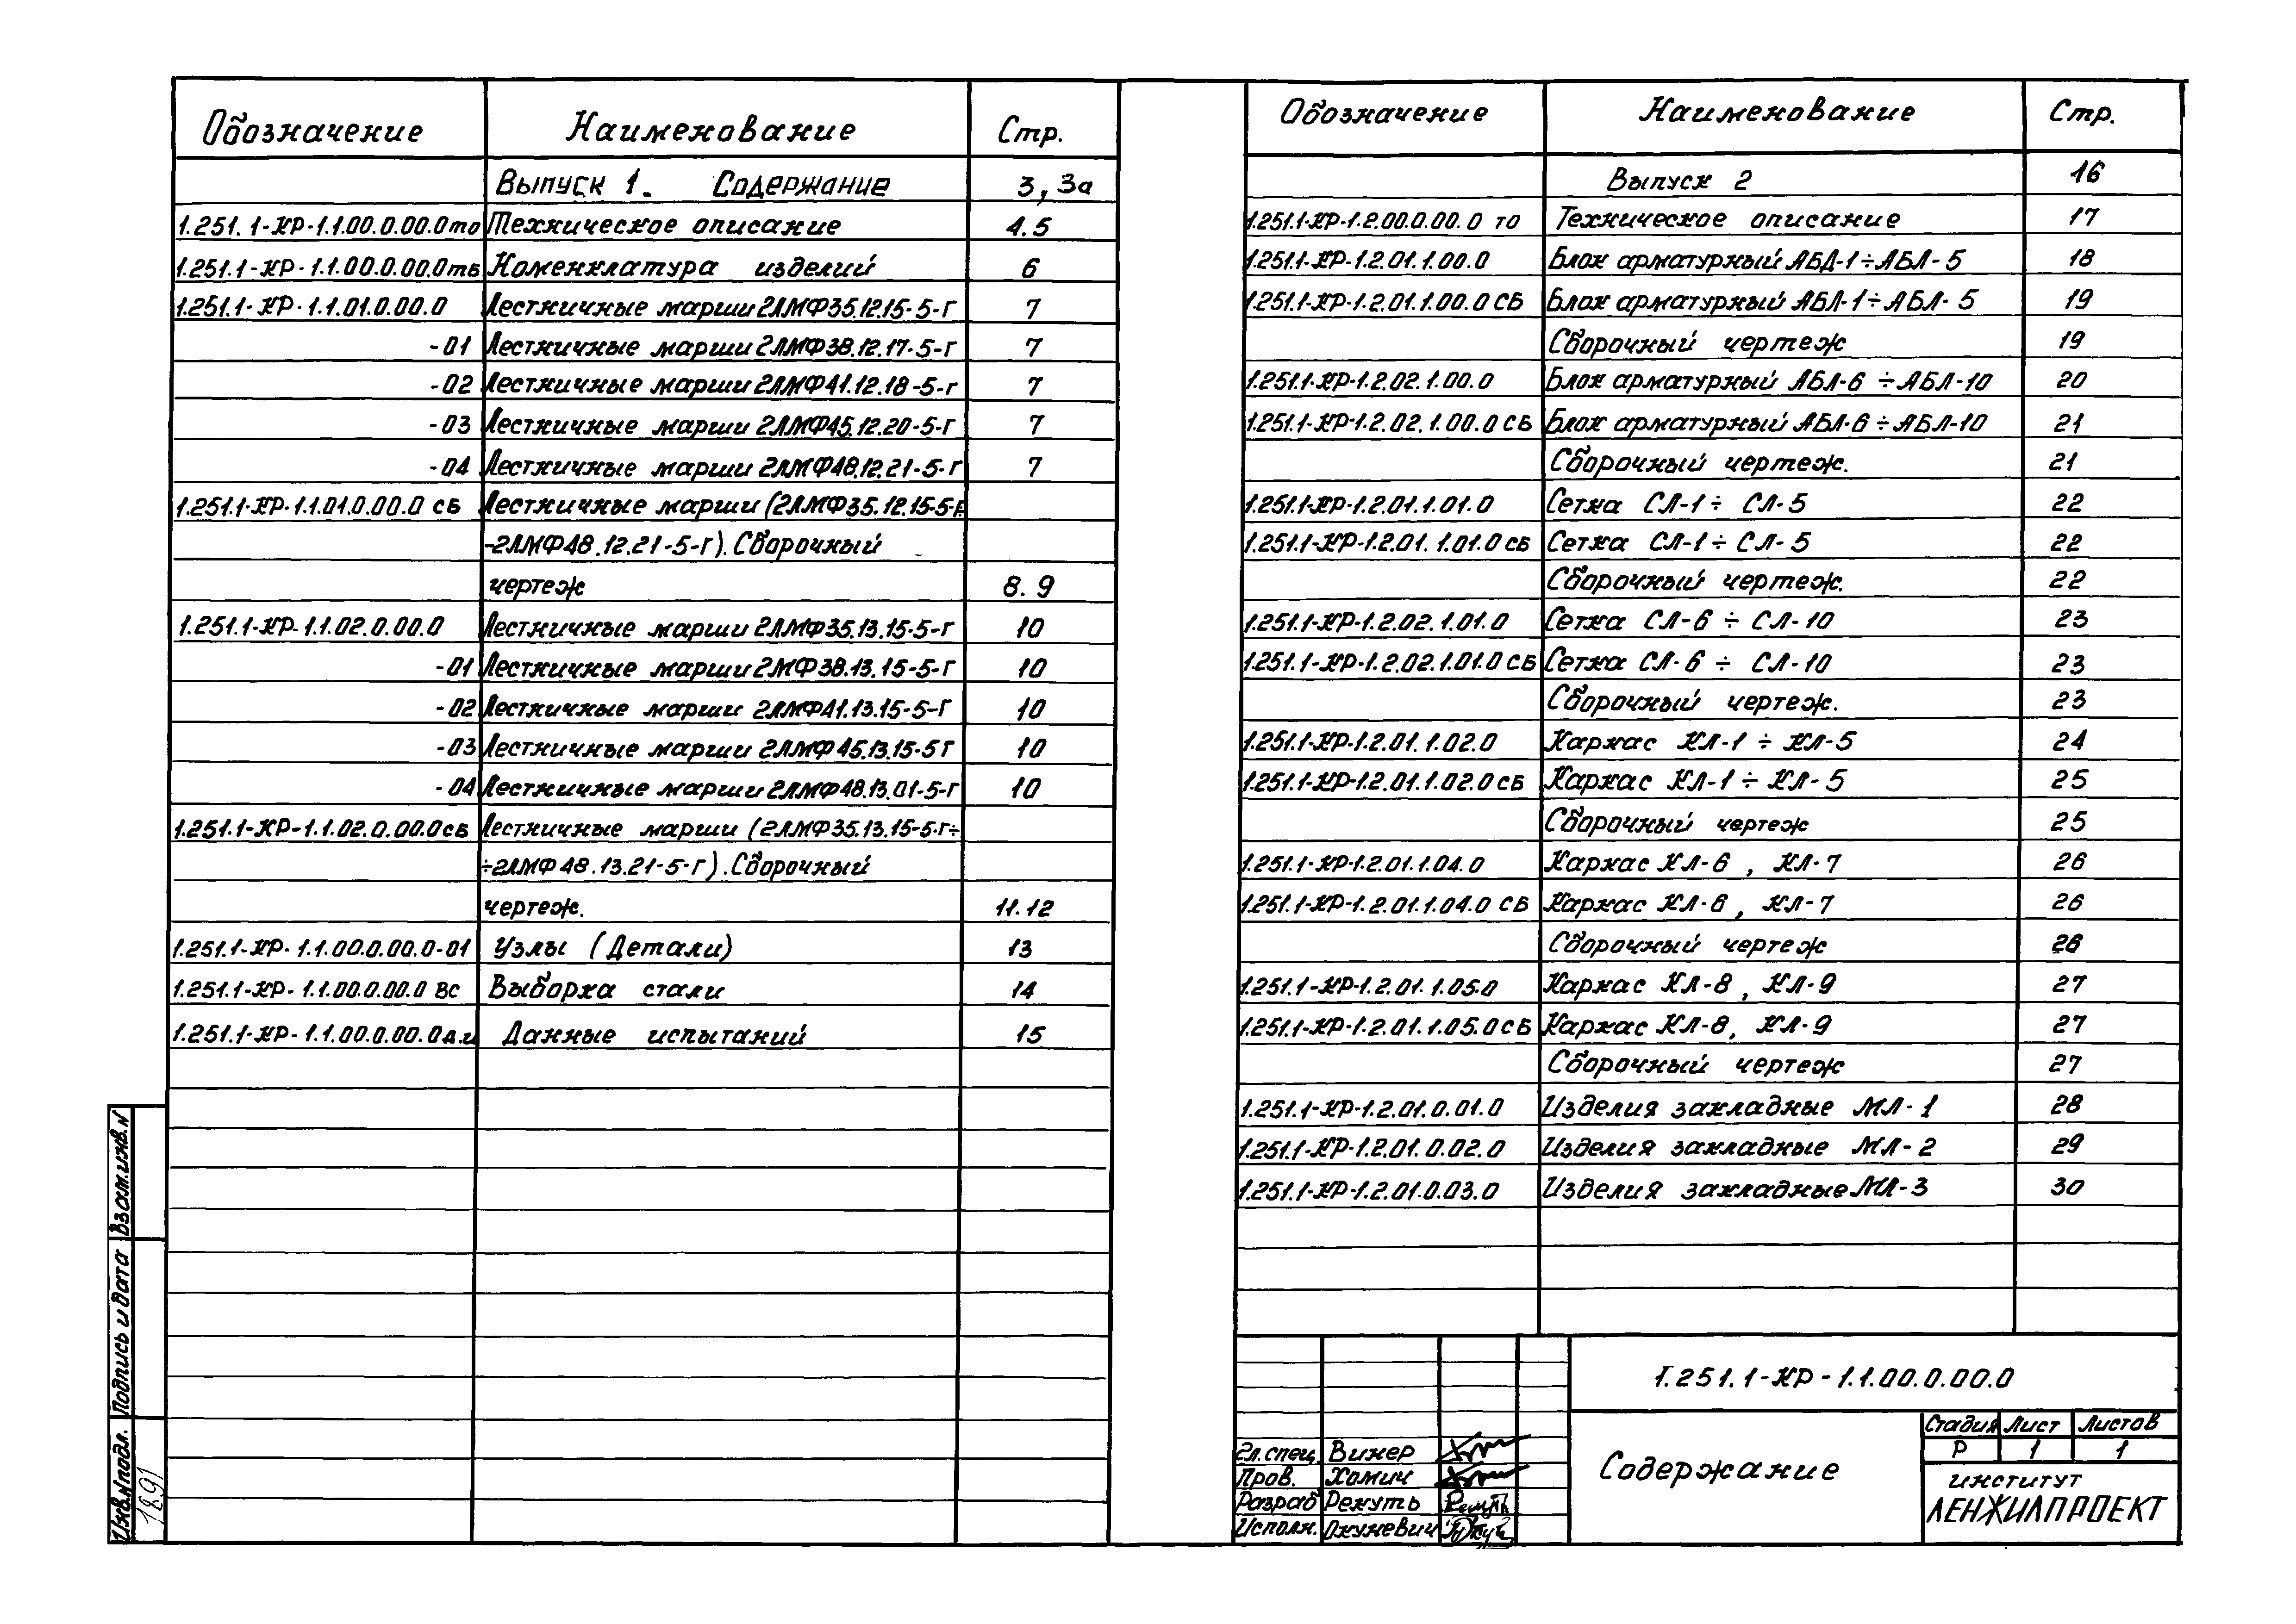 Обозначение Наименование Стр.
Выпуск 1. Содержание 3, 3а
1.251.1-КР-1.1.00.0.00.0то Техническое описание 4.5
1.251.1-КР-1.1.00.0.00.0тб Номенклатура изделий 6
1.251.1-КР-1.1.01.0.00.0 Лестничные марши 2ЛМФ35.12.15-5-г 7
-01 Лестничные марши 2ЛМФ38.12.17-5-г 7
-02 Лестничные марши 2ЛМФ41.12.18-5-г 7
-03 Лестничные марши 2ЛМФ45.12.20-5-г 7
-04 Лестничные марши 2ЛМФ48.12.21-5-г 7
1.251.1-КР-1.1.01.0.00.0 сб Лестничные марши (2ЛМФ35.12.15-5-г
-2ЛМФ48.12.21-5-г). Сборочный
чертеж 8.9
1.251.1-КР-1.1.02.0.00.0 Лестничные марши 2ЛМФ35.13.15-5-г 10
-01 Лестничные марши 2МФ38.13.15-5-г 10
-02 Лестничные марши 2ЛМФ41.13.15-5-г 10
-03 Лестничные марши 2ЛМФ45.13.15-5г 10
-04 Лестничные марши 2ЛМФ48.13.01-5-г 10
1.251.1-КР-1.1.02.0.00.0сб Лестничные марши (2ЛМФ35.13.15-5-г÷
÷2ЛМФ48.13.21-5-г). Сборочный
чертеж. 11.12
1.251.1-КР-1.1.00.0.00.0-01 Узлы (Детали) 13
1.251.1-КР-1.1.00.0.00.0 ВС Выборка стали 14
1.251.1-КР-1.1.00.0.00.0д.и Данные испытаний 15
Обозначение Наименование Стр.
Выпуск 2 16
1.251.1-КР-1.2.00.0.00.0 то Техническое описание 17
1.251.1-КР-1.2.01.1.00.0 Блок арматурный АБД-1÷АБЛ-5 18
1.251.1-КР-1.2.01.1.00.0 СБ Блок арматурный АБЛ-1÷АБЛ-5 19
Сборочный чертеж 19
1.251.1-КР-1.2.02.1.00.0 Блок арматурный АБЛ-6÷АБЛ-10 20
1.251.1-КР-1.2.02.1.00.0 СБ Блок арматурный АБЛ-6÷АБЛ-10 21
Сборочный чертеж. 21
1.251.1-КР-1.2.01.1.01.0 Сетка СЛ-1÷ СЛ-5 22
1.251.1-КР-1.2.01.1.01.0 сб Сетка СЛ-1÷ СЛ-5 22
Сборочный чертеж. 22
1.251.1-КР-1.2.02.1.01.0 Сетка СЛ-6 ÷ СЛ-10 23
1.251.1-КР-1.2.02.1.01.0 СБ Сетка СЛ-6 ÷ СЛ-10 23
Сборочный чертеж. 23
1.251.1-КР-1.2.01.1.02.0 Каркас КЛ-1 ÷ КЛ-5 24
1.251.1-КР-1.2.01.1.02.0 сб Каркас КЛ-1 ÷ КЛ-5 25
Сборочный чертеж 25
1.251.1-КР-1.2.01.1.04.0 Каркас КЛ-6 , КЛ-7 26
1.251.1-КР-1.2.01.1.04.0 СБ Каркас КЛ-6 , КЛ-7 26
Сборочный чертеж 26
1.251.1-КР-1.2.01.1.05.0 Каркас КЛ-8 , КЛ-9 27
1.251.1-КР-1.2.01.1.05.0 СБ Каркас КЛ-8, КЛ-9 27
Сборочный чертеж 27
1.251.1-КР-1.2.01.0.01.0 Изделия закладные МЛ-1 28
1.251.1-КР-1.2.01.0.02.0 Изделия закладные МЛ-2 29
1.251.1-КР-1.2.01.0.03.0 Изделия закладные МЛ-3 30
1.251.1-КР-1.1.00.0.00.0
Стадия Лист Листов
Р 1 1
Содержание
институт
ЛЕНЖИЛПРОЕКТ
Гл.спец. Винер
Пров. Хомич
Разраб Рекуть
Исполн. Окуневич
Взам.инв.N
Подпись и дата
Инв.Nподл.
1891